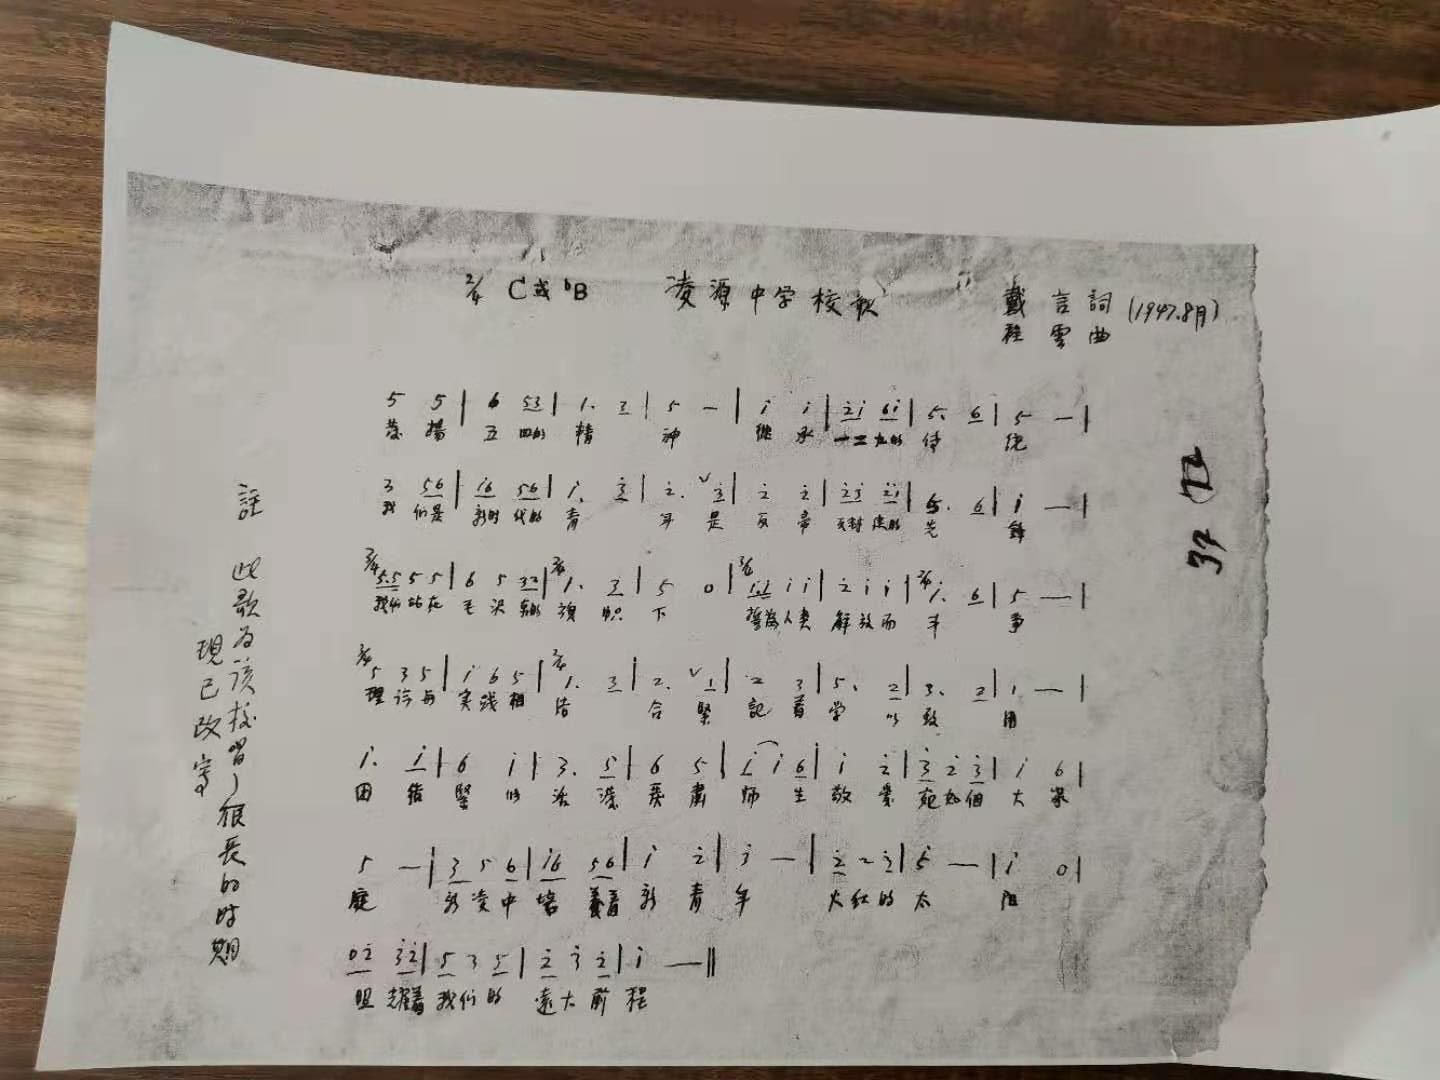 2/4 C或bB 凌源中学校歌 戴言詞 (1947.8月)
程雲曲
5 5 | 6 53 | 1. 3 | 5 — | i i | 2i 6i | 5. 6 | 5 — |
發揚五四的精神 继承一二九的传统
3 56 | i6 56 | i. 3 | 2. 3 | 2 2 | 23 2i | 5. 6 | i — |
我们是新时代的青年是反帝反封建的先鋒
2/4 55 5 5 | 6 5 32 | 1. 3 | 5 0 | i.i i i | 2 i i | i. 6 | 5 — |
我们站在毛沢東的旗帜下 誓為人类解放而斗争
5 3 5 | i 6 5 | 1. 3 | 2. 1 | 2 3 | 5. 2 | 3. 2 | 1 — |
理论与实践相结合緊記着学以致用
i. i | 6 i | 3. 5 | 6 5 | i i 6 | i 2 | 3 2 3 | i 6 |
团结緊张活泼严肅师生敬爱宛如個大家
5 — | 3 5 6 | i6 56 | i 2 | 3 — | 2 2 2 | 5 — | i 0 |
庭 新凌中培養着新青年 火红的太阳
02 32 | 5 3 5 | 2 3 2 | i — ||
照耀着我们的遠大前程
註 此歌为该校唱了很長的时期
現已改寫
37